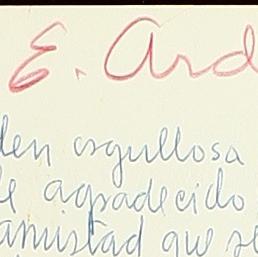 E. Ard
den orgullosa
de agradecido
amistad que se